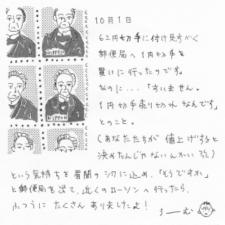 10月1日
62円切手に付け足すべく
郵便局へ1円切手を
買いに行ったのです。
なのに…「すいません。
1円切手売り切れなんです」
とのこと。
(あなたたちが値上げすると
決めたんじゃないんかいっ!)
という気持ちを眉間のシワに込め、「そうですか」
と郵便局を出て、近くのローソンへ行ったら、
ふつうにたくさんありましたよ!